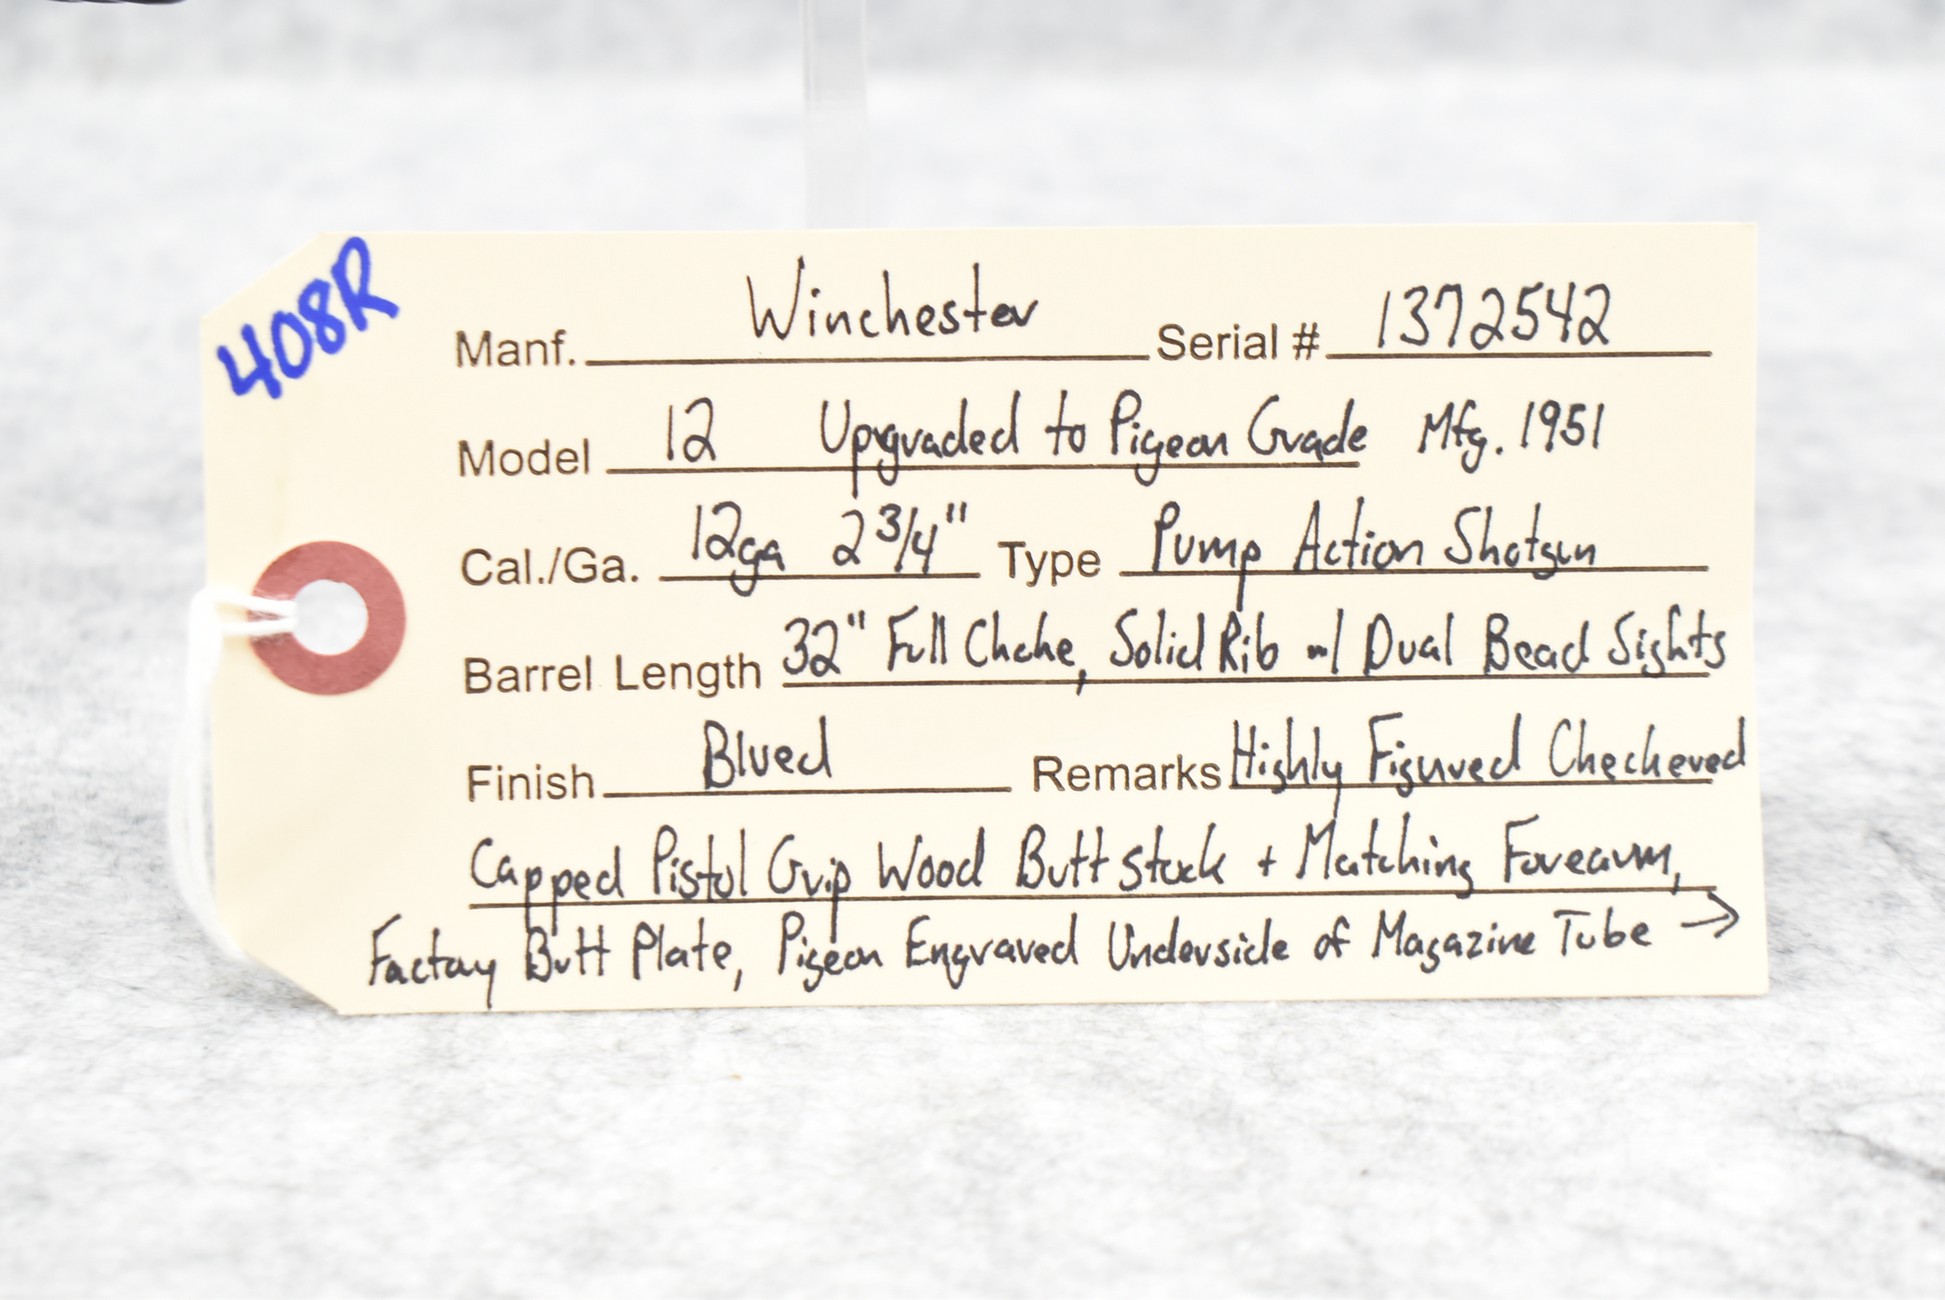 408R
Manf. Winchester Serial # 1372542
Model 12 Upgraded to Pigeon Grade Mfg. 1951
Cal./Ga. 12ga 2 3/4" Type Pump Action Shotgun
Barrel Length 32" Full Choke, Solid Rib w/ Dual Bead Sights
Finish Blued Remarks Highly Figured Checkered
Capped Pistol Grip Wood Butt Stock + Matching Forearm,
Factory Butt Plate, Pigeon Engraved Underside of Magazine Tube →